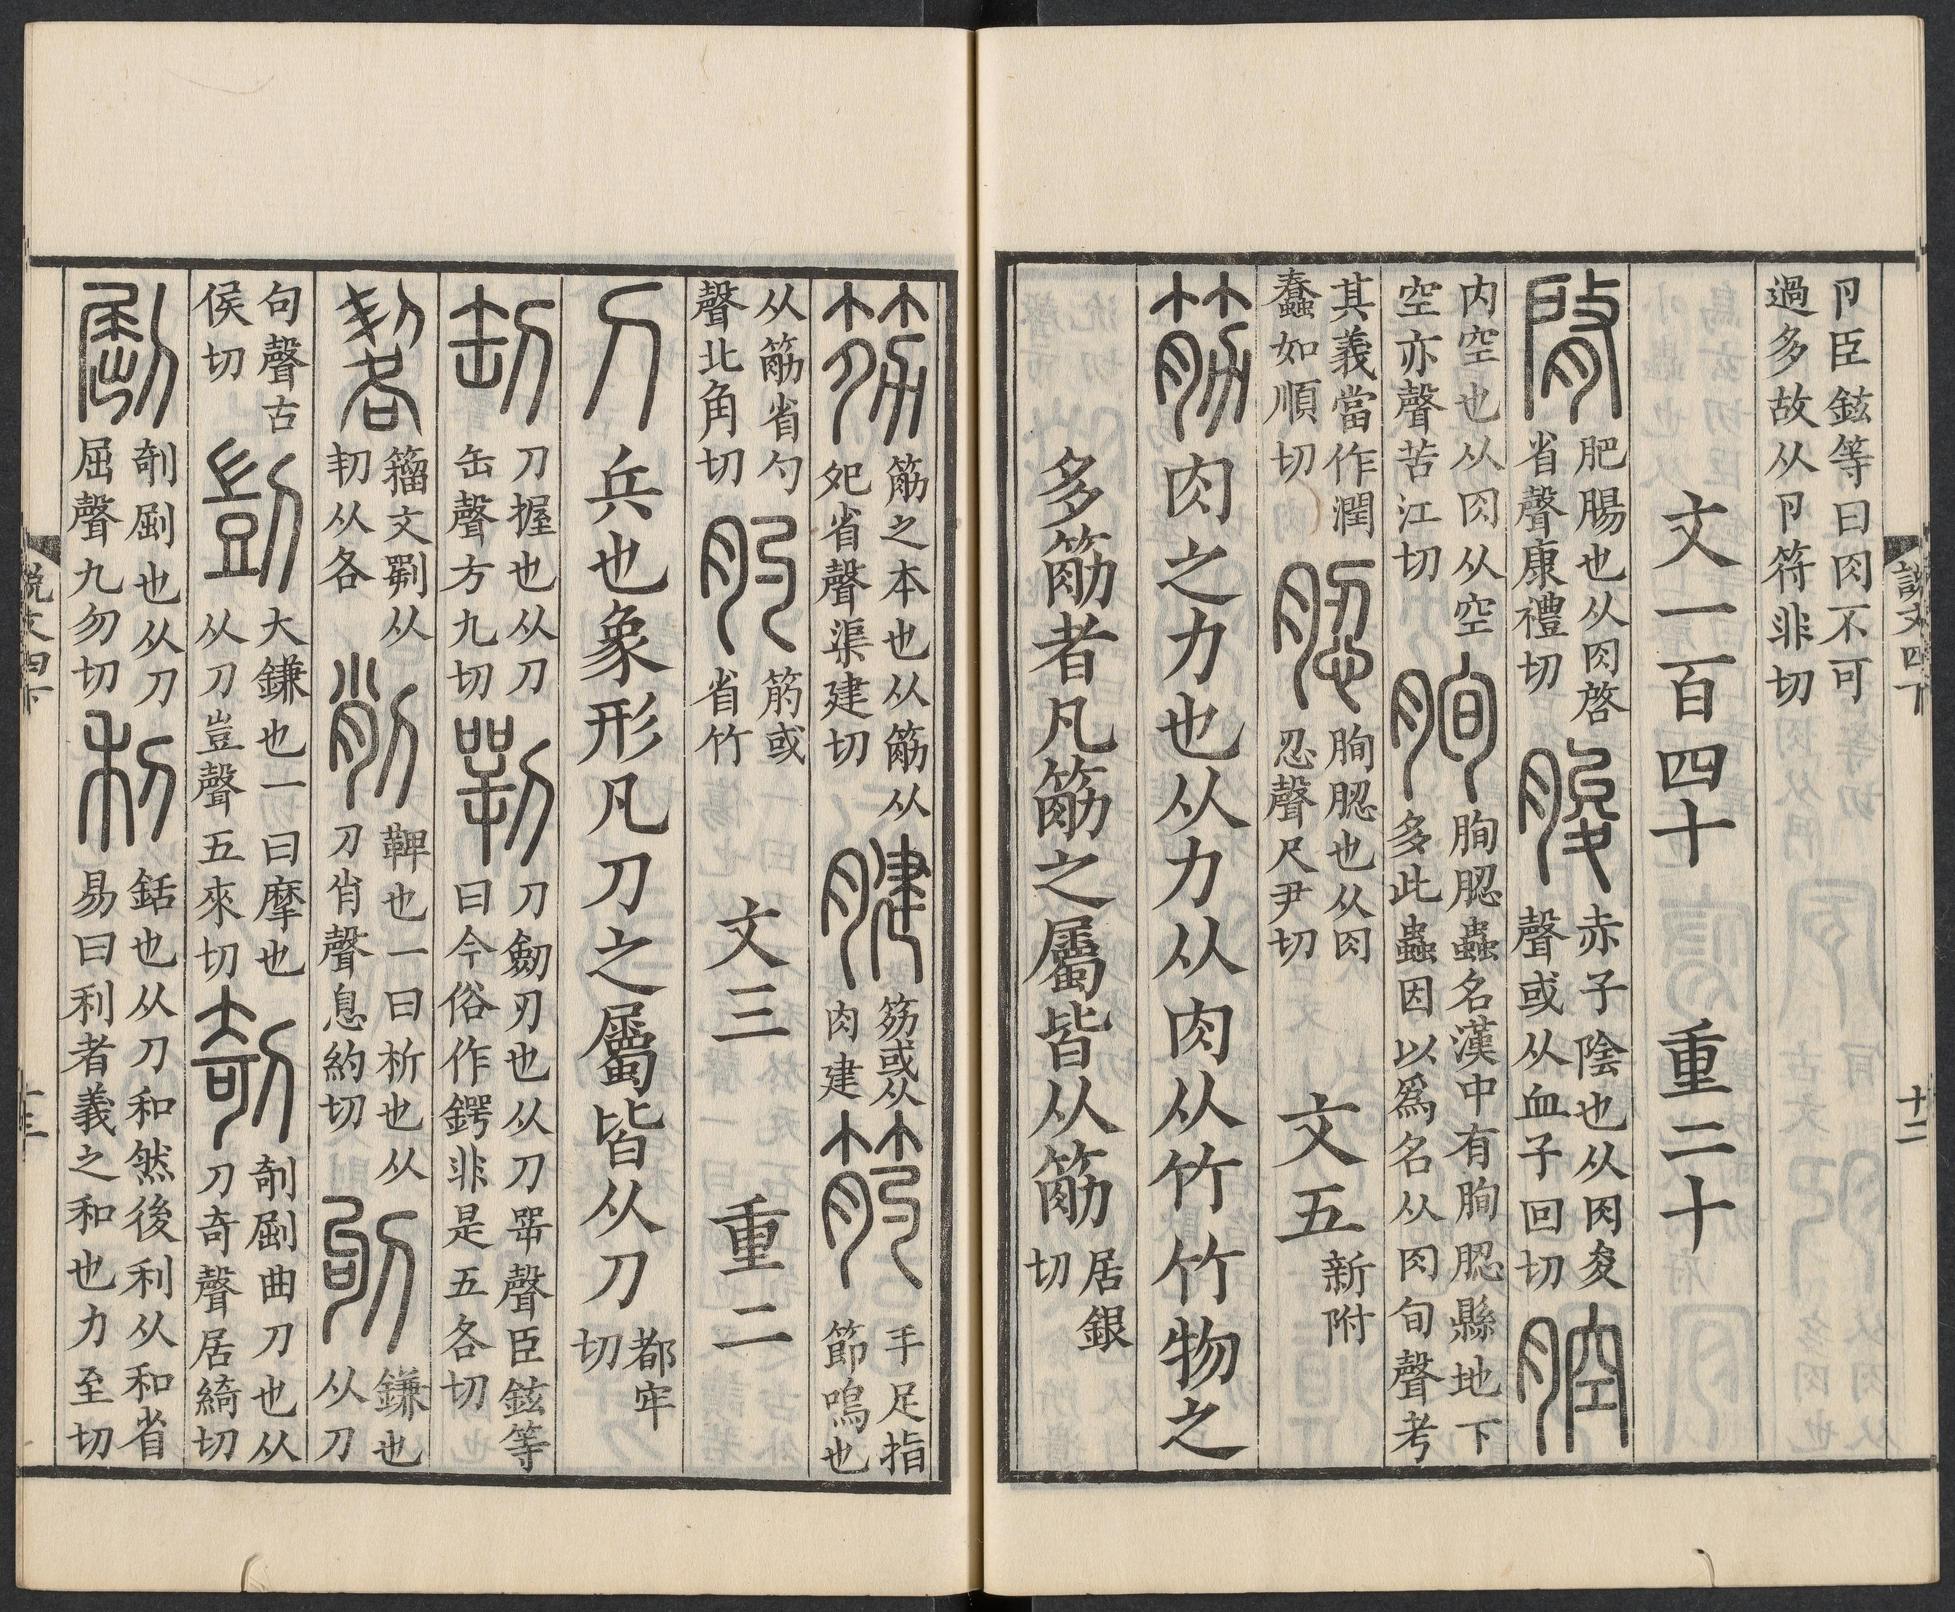 說文四下
十二
卪臣鉉等曰肉不可
過多故从卪符非切
文一百四十 重二十
䏿
肥腸也从肉啓
省聲康禮切
朘
赤子陰也从肉夋
聲或从血子回切
腔
内空也从肉从空
空亦聲苦江切
朐
朐䏰蟲名漢中有朐䏰縣地下
多此蟲因以爲名从肉旬聲考
其義當作潤
蠢如順切
䏰
朐䏰也从肉
忍聲尺尹切
文五
新附
筋肉之力也从力从肉从竹竹物之
多筋者凡筋之屬皆从筋
居銀
切
𥯃
筋之本也从筋从
夗省聲渠建切
腱
𥯃或从
肉建
筋
手足指
節鳴也
从筋省勺
聲北角切
肑
筋或
省竹
文三 重二
刀兵也象形凡刀之屬皆从刀
都牢
切
㓡
刀握也从刀
缶聲方九切
㓵
刀劒刃也从刀㖾聲臣鉉等
曰今俗作鍔非是五各切
𠠫
籒文㓵从
㓞从各
削
鞞也一曰析也从
刀肖聲息約切
刨
鎌也
从刀
句聲古
侯切
剴
大鎌也一曰摩也
从刀豈聲五來切
剞
剞㔳曲刀也从
刀奇聲居綺切
㔳
剞㔳也从刀
屈聲九勿切
利
銛也从刀和然後利从和省
易曰利者義之和也力至切
說文四下
十三